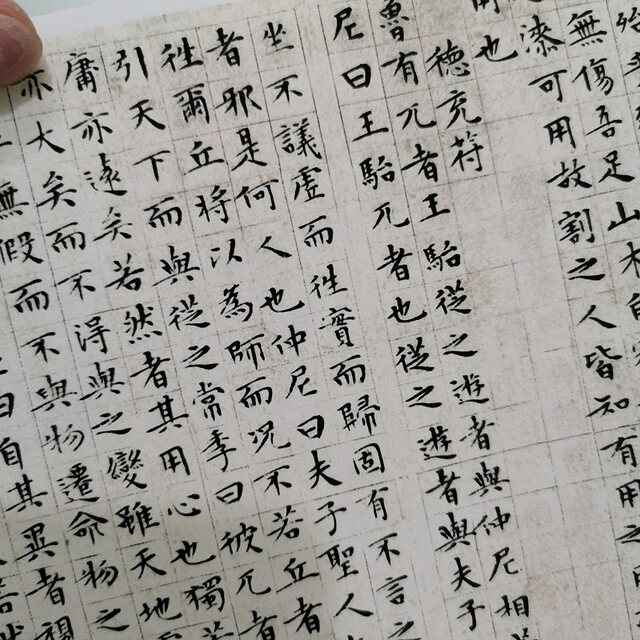 無傷吾足山木自
漆可用故割之人皆知有用之
也
德充符
魯有兀者王駘從之遊者與仲尼相
尼曰王駘兀者也從之遊者與夫子
坐不議虛而往實而歸固有不言之
者邪是何人也仲尼曰夫子聖人
往爾丘將以為師而況不若丘者
引天下而與從之常季曰彼兀者
庸亦遠矣若然者其用心也獨若
亦大矣而不得與之變雖天地
無假而不與物遷命物之
曰自其異者視